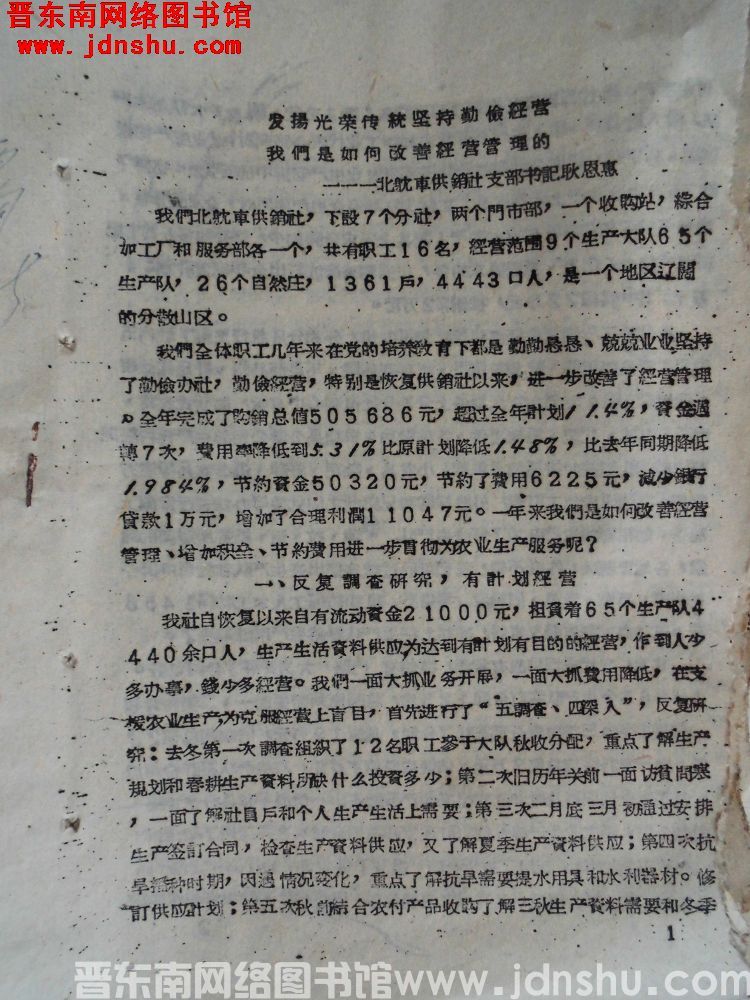 晋东南网络图书馆
www.jdnshu.com
发揚光荣传統坚持勤儉経营
我們是如何改善経营管理的
———北躭車供銷社支部书記耿恩惠
我們北躭車供銷社，下設7个分社，两个門市部，一个收购站，綜合
加工厂和服务部各一个，共有职工16名，経营范围9个生产大队65个
生产队，26个自然庄，1361戶，4443口人，是一个地区辽闊
的分散山区。
我們全体职工几年来在党的培养教育下都是勤勤恳恳、兢兢业业坚持
了勤儉办社，勤儉経营，特别是恢复供銷社以来，进一步改善了経营管理
。全年完成了购銷总值505686元，超过全年計划11.4%，資金週
轉7次，費用率降低到5.31%比原計划降低1.48%，比去年同期降低
1.984%，节約資金50320元，节約了費用6225元，减少銀行
贷款1万元，增加了合理利潤11047元。一年来我們是如何改善経营
管理、增加积垒、节約費用进一步貫彻为农业生产服务呢？
一、反复調查研究，有計划経营
我社自恢复以来自有流动資金21000元，担負着65个生产队4
440余口人，生产生活資料供应为达到有計划有目的的経营，作到人少
多办事，錢少多経营。我們一面大抓业务开展，一面大抓費用降低，在支
援农业生产为克服経营上盲目，首先进行了“五調查、四深入”，反复研
究：去冬第一次調查組织了12名职工参于大队秋收分配，重点了解生产
規划和春耕生产資料所缺什么投資多少；第二次旧历年关前一面訪貧問寒
，一面了解社員戶和个人生产生活上需要；第三次二月底三月初通过安排
生产签訂合同，检查生产資料供应，又了解夏季生产資料供应；第四次抗
旱播种时期，因遇情况变化，重点了解抗旱需要提水用具和水利器材。修
訂供应計划；第五次秋前結合农村产品收购了解三秋生产資料需要和冬季
1
晋东南网络图书馆www.jdnshu.com